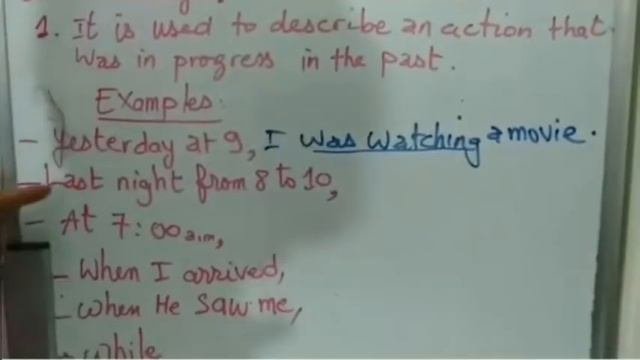 1. It is used to describe an action that
was in progress in the past.
Examples:
- Yesterday at 9, I was watching a movie.
- Last night from 8 to 10,
- At 7:00 a.m,
- When I arrived,
- when He saw me,
- while